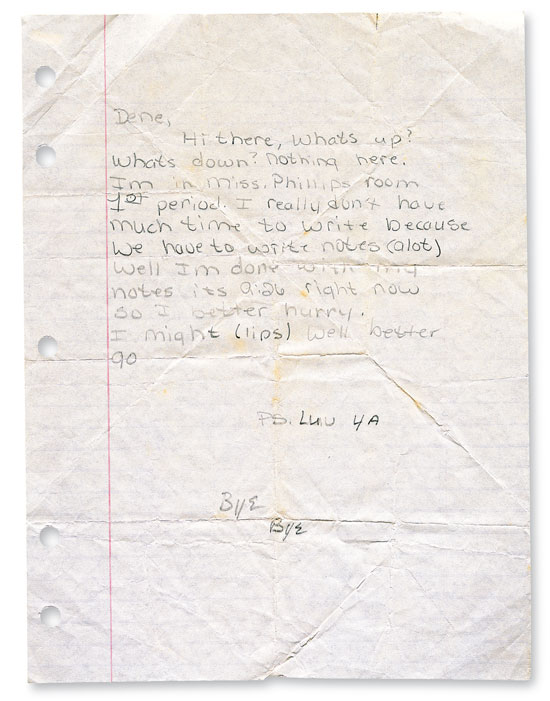 Dene,
Hi there, Whats up?
Whats down? Nothing here.
Im in Miss. Phillips room
1st period. I really don't have
much time to write because
We have to write notes (alot)
Well Im done with my
notes its 9:26 right now
so I better hurry.
I might (lips) Well better
go
PS. Luv YA
Bye
Bye